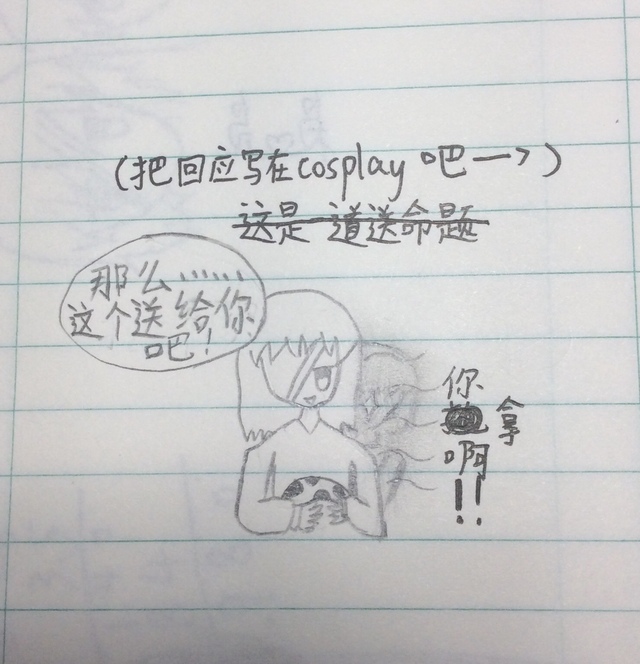 (把回应写在cosplay吧一>)
这是一道送命题
那么……
这个送给你
吧!
你
拿
啊
!!